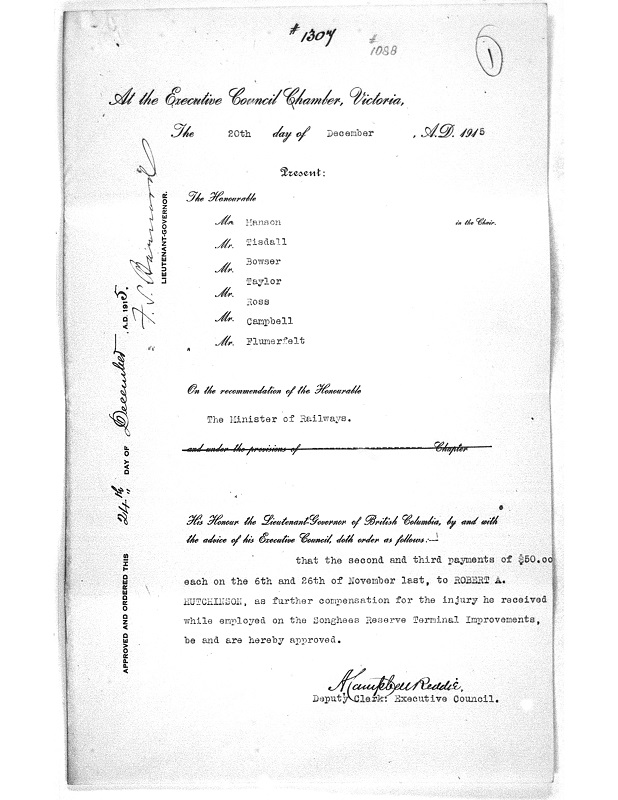 #1307
#
1088
1
At the Executive Council Chamber, Victoria,
The 20th day of December , A.D. 1915
Present:
The Honourable
Mr. Manson in the Chair.
Mr. Tisdall
Mr. Bowser
Mr. Taylor
Mr. Ross
Mr. Campbell
" Mr. Flumerfelt
On the recommendation of the Honourable
The Minister of Railways.
and under the provisions of Chapter
His Honour the Lieutenant-Governor of British Columbia, by and with
the advice of his Executive Council, doth order as follows:—
that the second and third payments of $50.00
each on the 6th and 26th of November last, to ROBERT A.
HUTCHINSON, as further compensation for the injury he received
while employed on the Songhees Reserve Terminal Improvements,
be and are hereby approved.
A Campbell Reddie.
Deputy Clerk: Executive Council.
APPROVED AND ORDERED THIS 24th DAY OF December , A.D. 1915.
F. S. Barnard
LIEUTENANT-GOVERNOR.